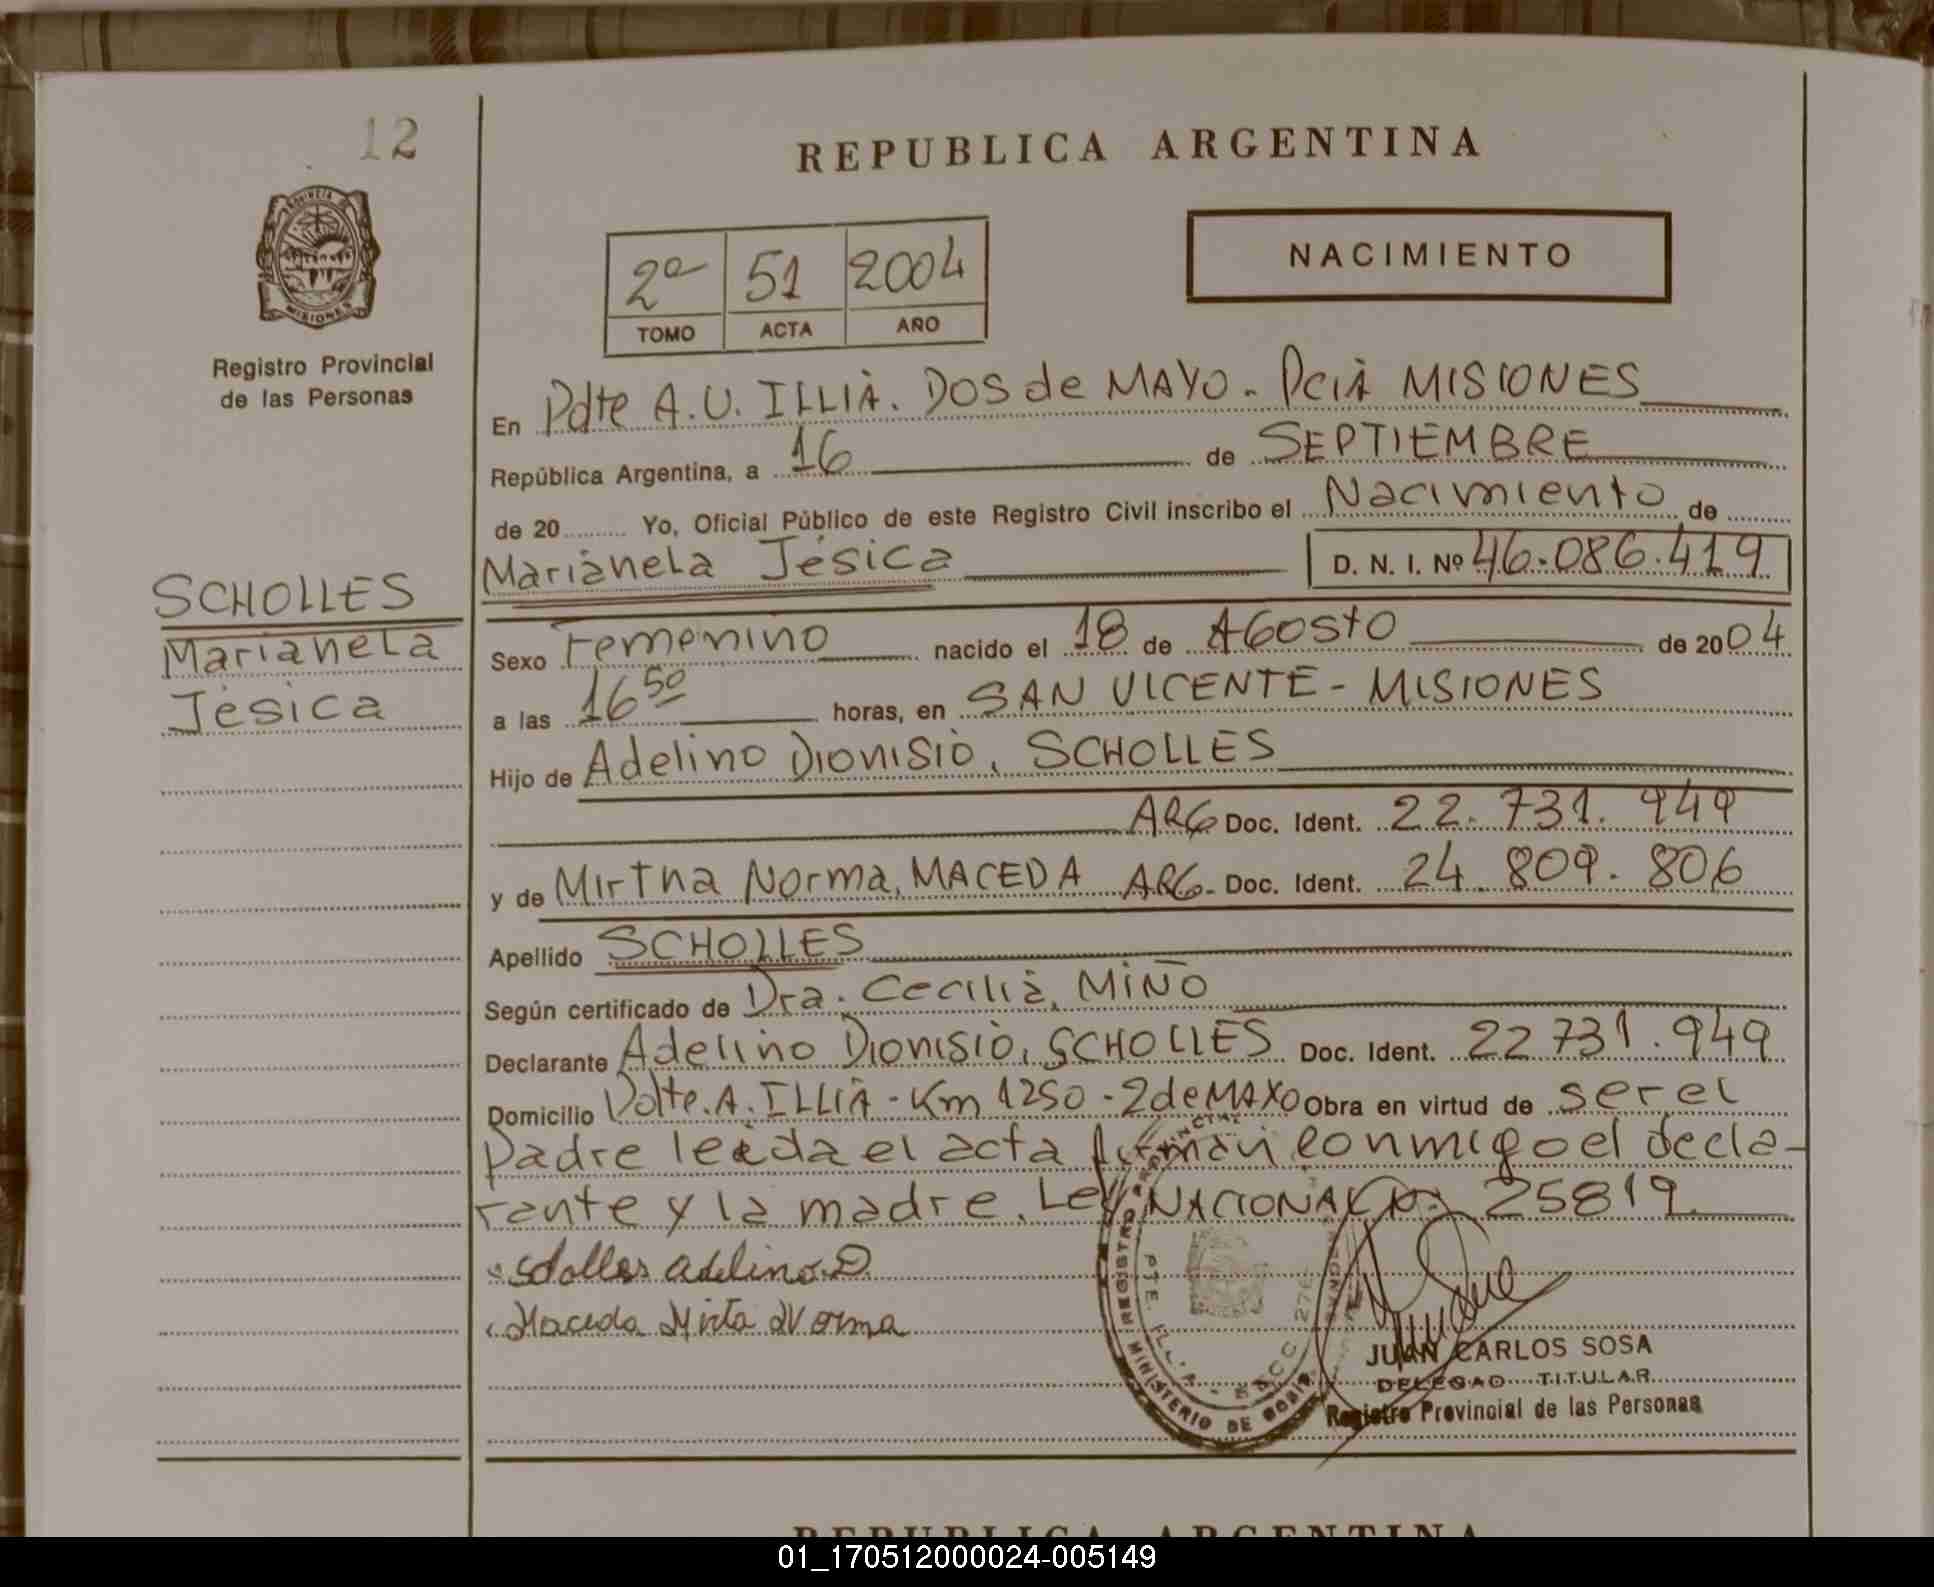 12
REPUBLICA ARGENTINA
PROVINCIA DE
MISIONES
Registro Provincial
de las Personas
2º 51 2004
TOMO ACTA AÑO
NACIMIENTO
En Pdte A.U. ILLIA. DOS de MAYO - Pcia MISIONES
República Argentina, a 16 de SEPTIEMBRE
de 20 Yo, Oficial Público de este Registro Civil inscribo el Nacimiento de
Marianela Jésica D. N. I. Nº 46.086.419
SCHOLLES
Marianela
Jésica
Sexo Femenino nacido el 18 de Agosto de 2004
a las 16 50 horas, en SAN VICENTE - MISIONES
Hijo de Adelino Dionisio, SCHOLLES
ARG Doc. Ident. 22.731.949
y de Mirtha Norma, MACEDA ARG- Doc. Ident. 24.809.806
Apellido SCHOLLES
Según certificado de Dra. Cecilia, MIÑO
Declarante Adelino Dionisio, SCHOLLES Doc. Ident. 22 731.949
Domicilio Pdte. A. ILLIA - Km 1250 - 2 de MAYO Obra en virtud de ser el
padre leida el acta firman conmigo el decla-
rante y la madre. Ley NACIONAL Nº 25819
Scholles Adelino D
Maceda Mirta Norma
REGISTRO PROVINCIAL
PTE. ILLIA
MINISTERIO DE
JUAN CARLOS SOSA
DELEGAD TITULAR
Registro Provincial de las Personas
REPUBLICA ARGENTINA
01_170512000024-005149